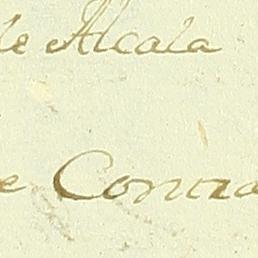 de Alcala
e Contra